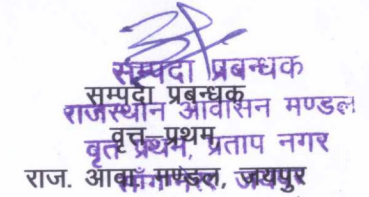 सम्पदा प्रबन्धक
सम्पदा प्रबन्धक
राजस्थान आवासन मण्डल
वृत्त-प्रथम,
वृत प्रथम, प्रताप नगर
राज. आवा. मण्डल, जयपुर
सांगानेर जयपुर